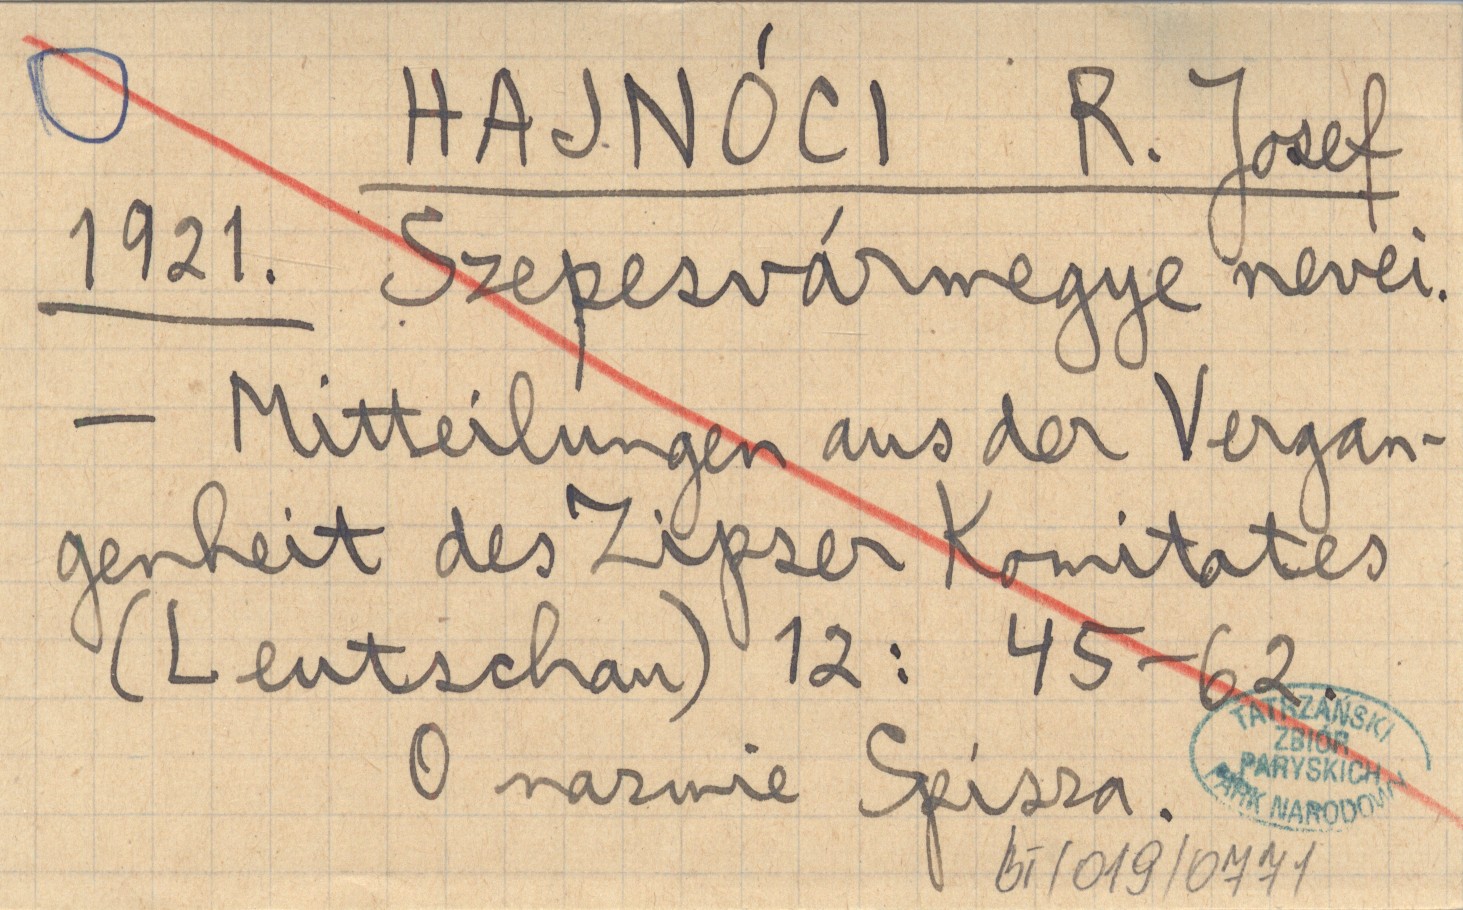 HAJNÓCI R. Josef
1921. Szepesvármegye nevei.
— Mitteilungen aus der Vergan-
genheit des Zipser Komitates
(Leutschau) 12: 45-62.
O nazwie Spisza.
TATRZAŃSKI
ZBIÓR
PARYSKICH
PARK NARODOWY
bi/019/0771